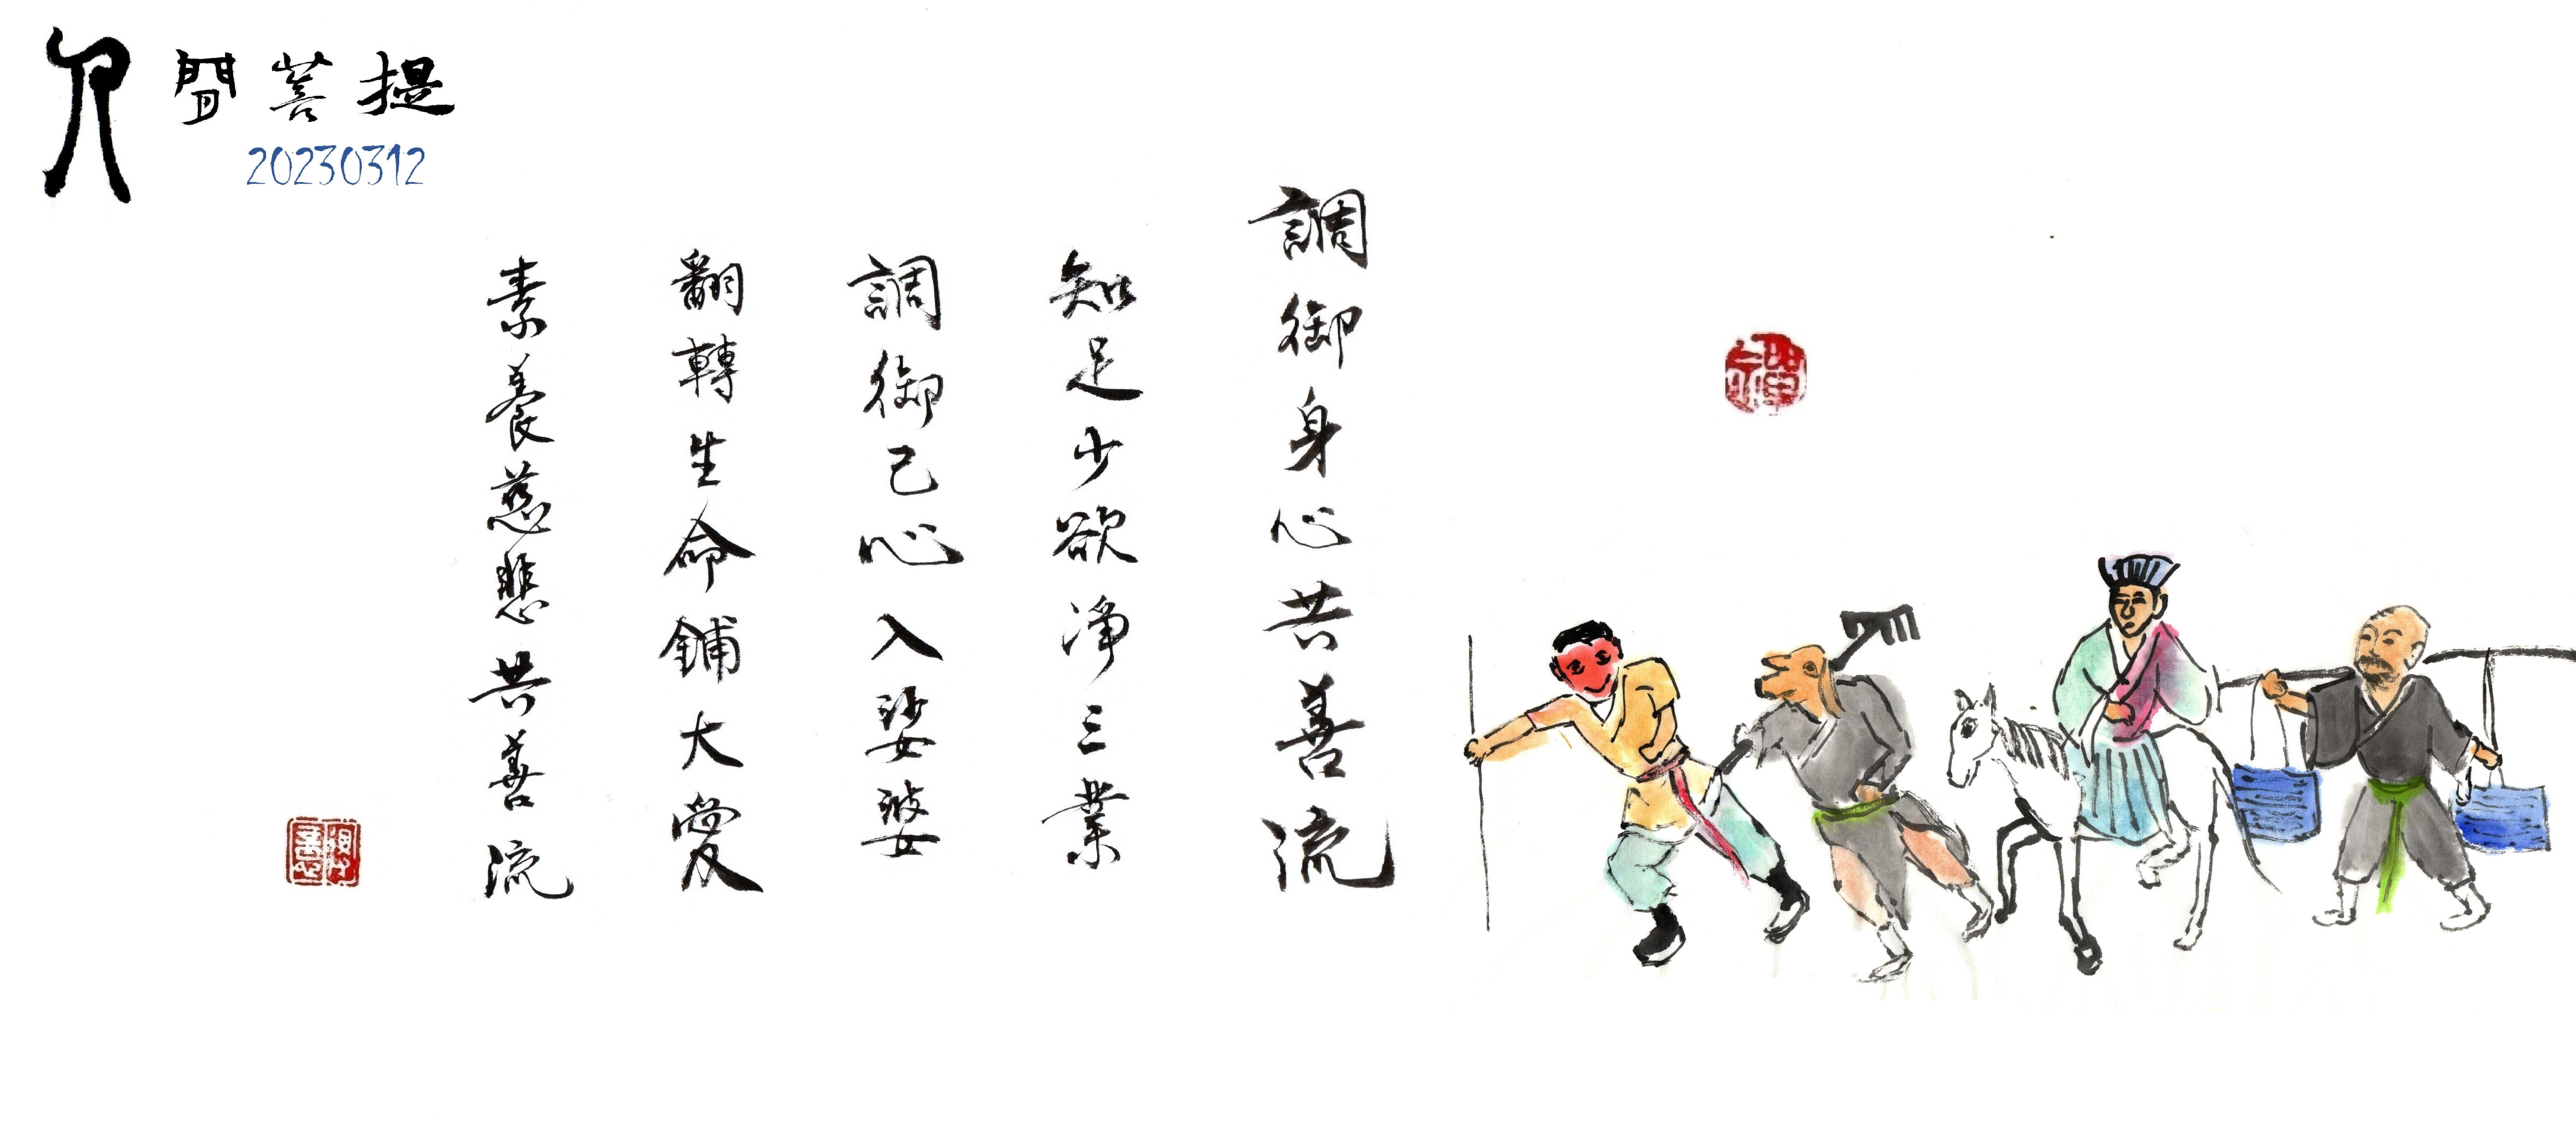 人間菩提
20230312
調御身心共善流
知足少欲淨三業
調御己心入娑婆
翻轉生命鋪大愛
素養慈悲共善流
禪